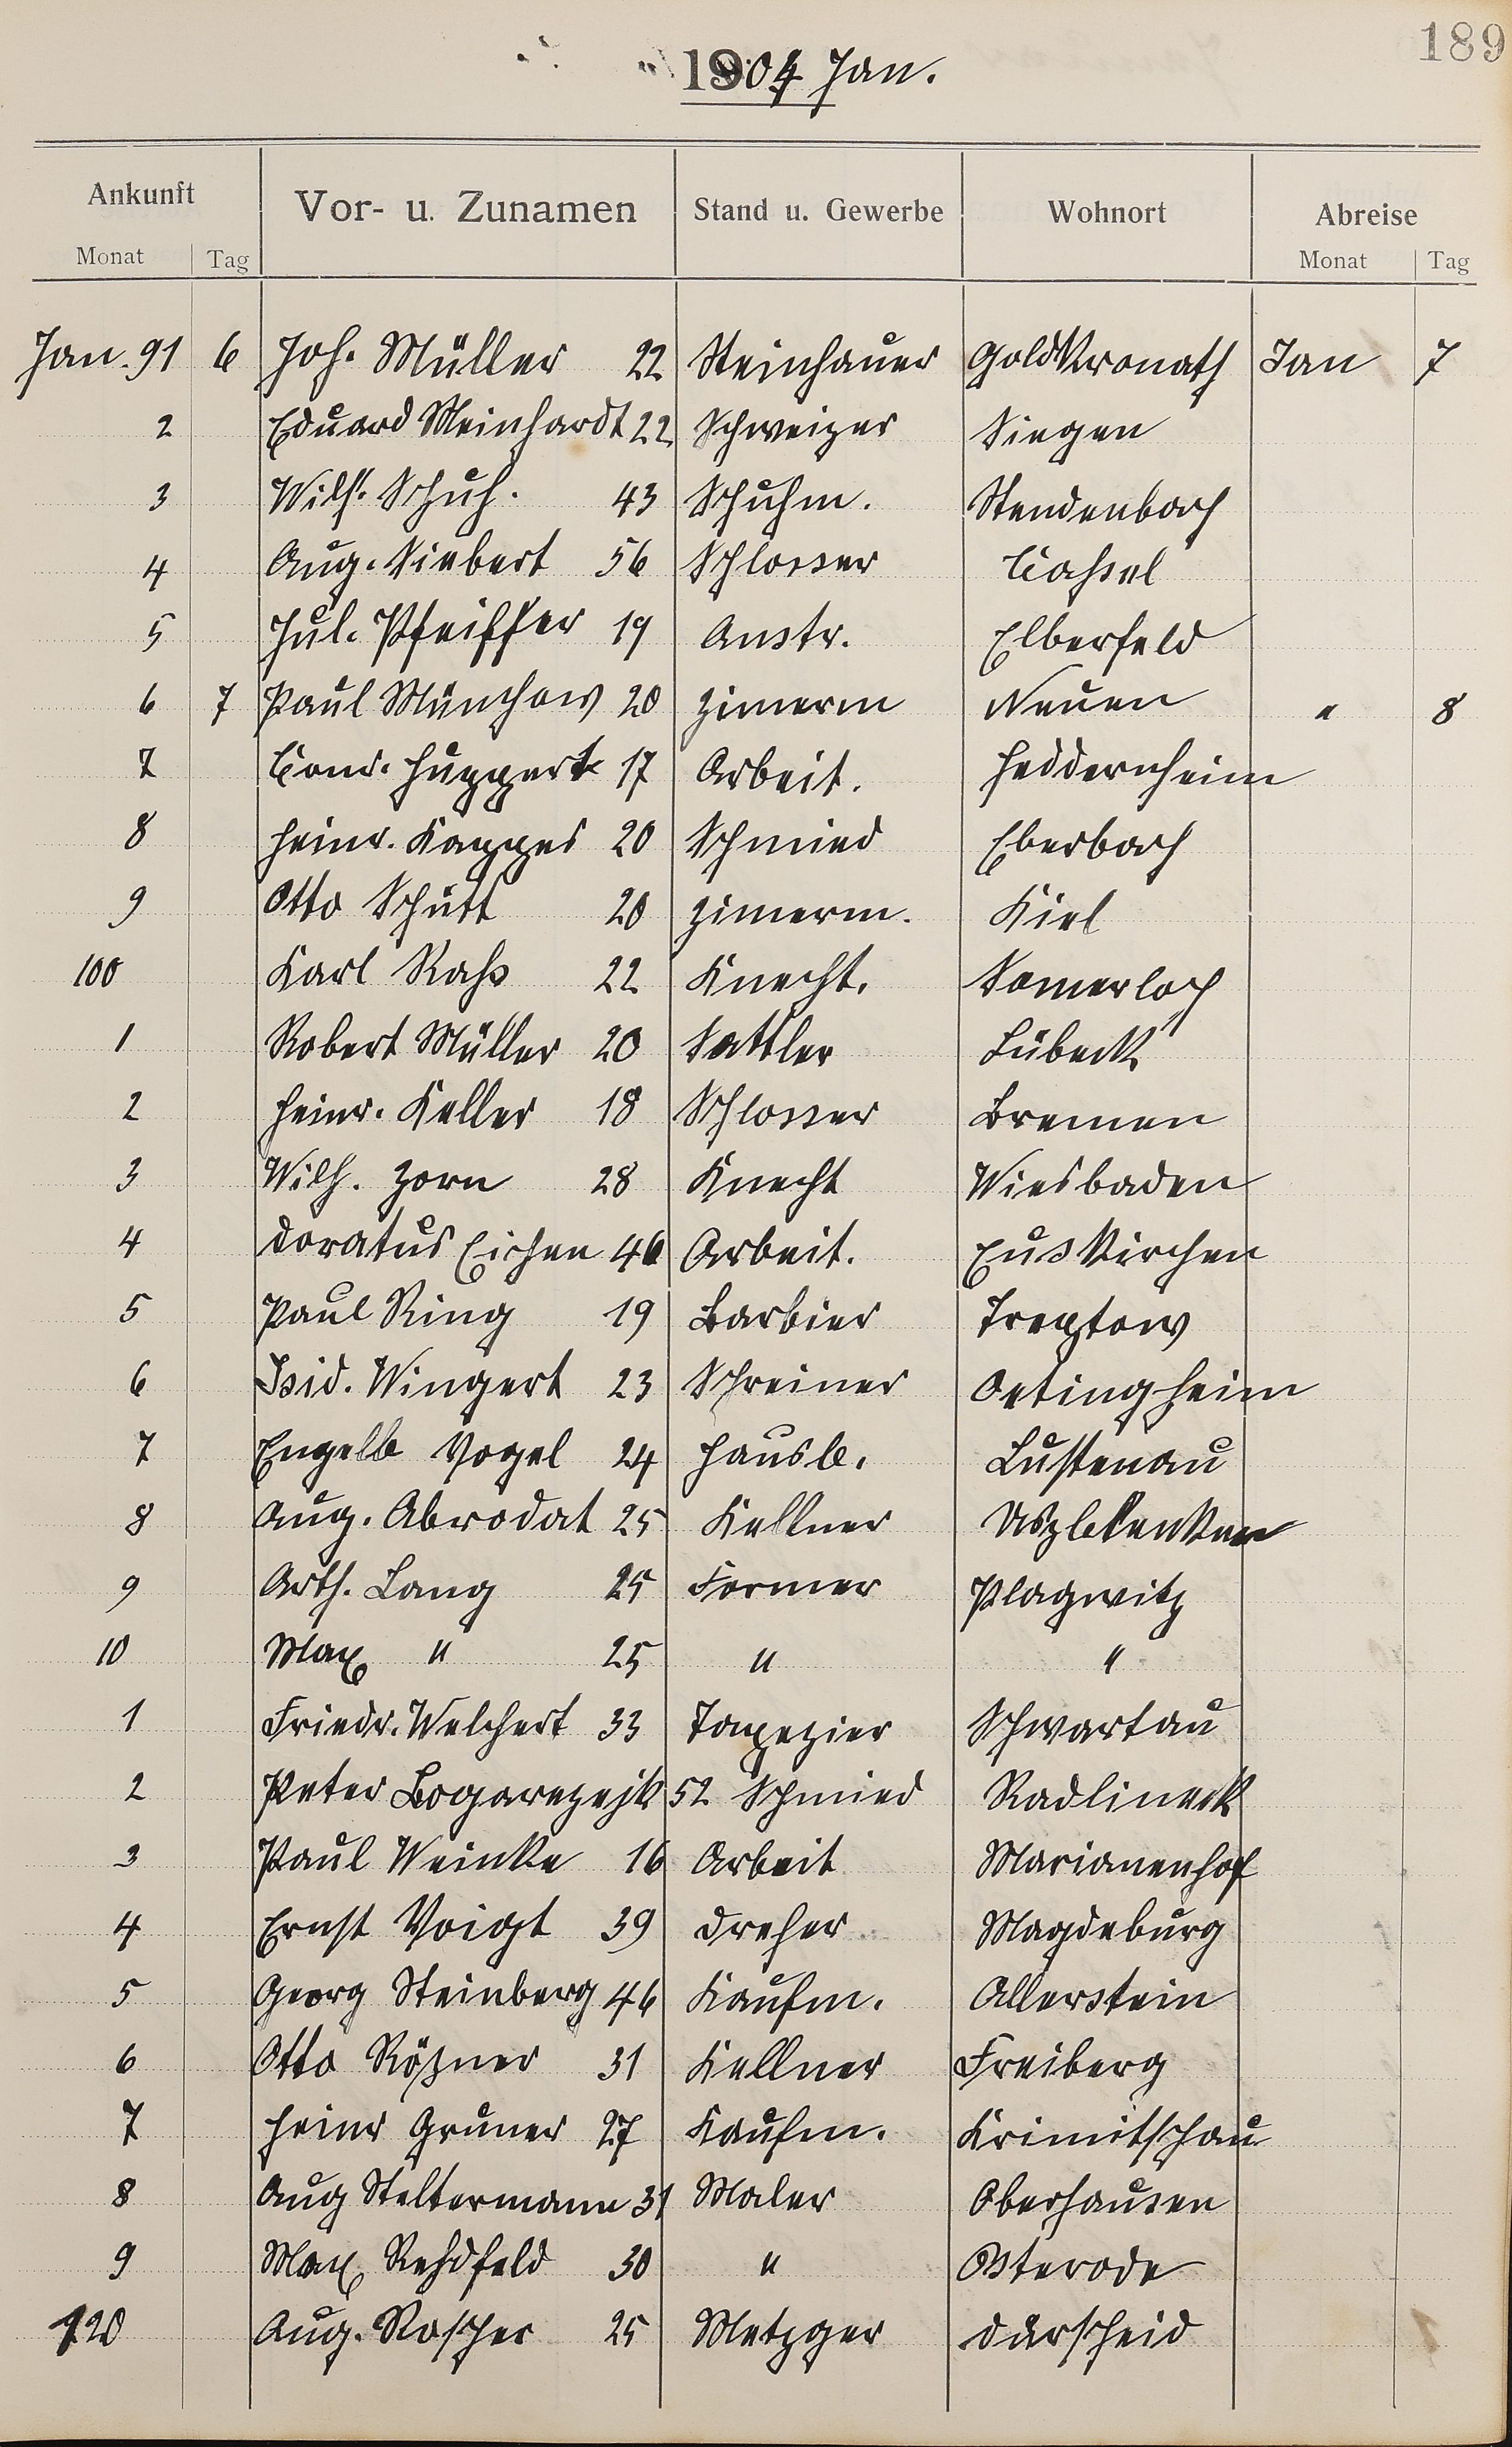 189
1904 Jan.
Ankunft Vor- u. Zunamen Stand u. Gewerbe Wohnort Abreise
Monat Tag Monat Tag
Jan. 91 6 Joh. Müller 22 Steinhauer Goldkronath Jan 7
2 Eduard Meinhardt 22 Schweizer Siegen
3 Wilh. Schuh. 43 Schuhm. Stendenbach
4 Aug. Siebert 56 Schlosser Cassel
5 Jul. Pfeiffer 19 Anstr. Elberfeld
6 7 Paul Münchow 20 Zimerm Neuen " 8
7 Conr. Huppert 17 Arbeit. Heddernheim
8 Heinr. Kappes 20 Schmied Eberbach
9 Otto Schütt 20 Zimerm. Kiel
100 Karl Rahs 22 Knecht. Somerloch
1 Robert Müller 20 Sattler Lübeck
2 Heinr. Keller 18 Schlosser Bremen
3 Wilh. Zorn 28 Knecht Wiesbaden
4 Doratus Eichen 46 Arbeit. Euskirchen
5 Paul Ring 19 Barbier Treptow
6 Isid. Wingert 23 Schreiner Oetingheim
7 Engelb Vogel 24 Hausb. Lustenau
8 Aug. Abrodat 25 Kellner
9 Arth. Lang 25 Former Plagwitz
10 Max " 25 " "
1 Friedr. Welchert 33 Tapezier Schwartau
2 Peter 52 Schmied Radlineck
3 Paul Weinke 16 Arbeit Marianenhof
4 Ernst Voigt 39 Dreher Magdeburg
5 Georg Steinberg 46 Kaufm. Allerstein
6 Otto Rößner 31 Kellner Freiberg
7 Heinr Gruner 27 Kaufm. Krimitschau
8 Aug Steltermann 31 Maler Oberhausen
9 Max Rehdfeld 30 " Osterode
120 Aug. Roscher 25 Metzger Dürscheid